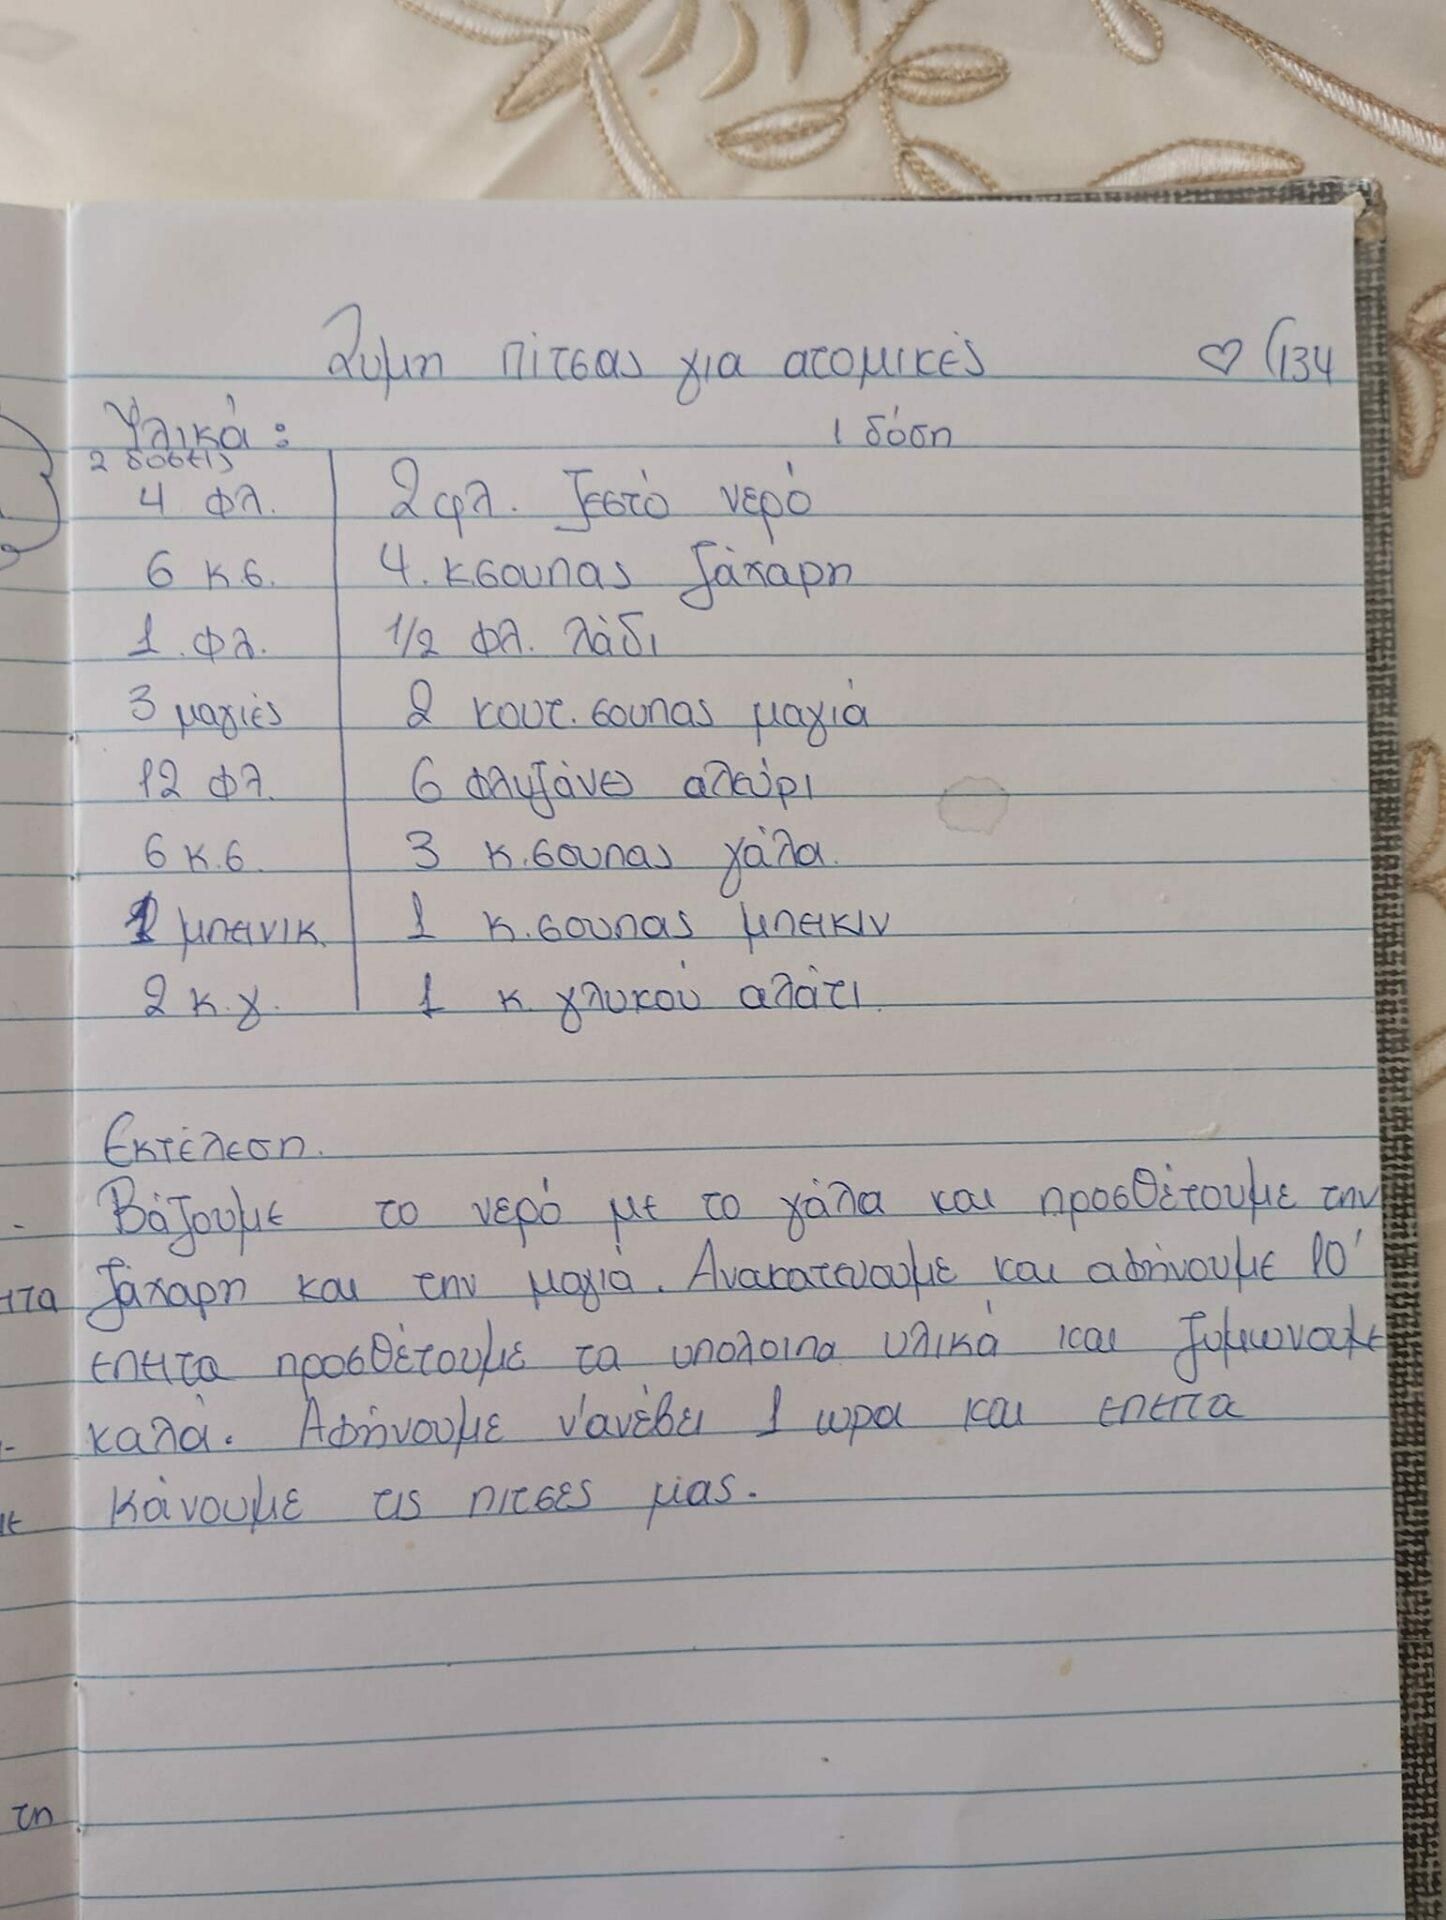 Ζυμη πίτσας για ατομικές ♡ 134
Υλικά : 1 δόση
2 δόσεις
4 φλ. 2 φλ. ζεστό νερό
6 κ.σ. 4. κ.σουπας ζάχαρη
1 . φλ. 1/2 φλ. λάδι
3 μαγιές 2 κουτ. σουπας μαγιά
12 φλ. 6 φλυζάνες αλεύρι
6 κ.σ. 3 κ.σουπας γάλα.
1 μπεινικ. 1 κ.σουπας μπεικιν
2 κ.γ. 1 κ. γλυκού αλάτι.
Εκτέλεση.
Βάζουμε το νερό με το γάλα και προσθέτουμε την
ζάχαρη και την μαγιά. Ανακατευουμε και αφήνουμε 10'
επειτα προσθέτουμε τα υπολοιπα υλικά και ζυμωνουμε
καλά. Αφήνουμε ν'ανέβει 1 ωρα και επειτα
Κάνουμε τις πιτσες μας.
τη